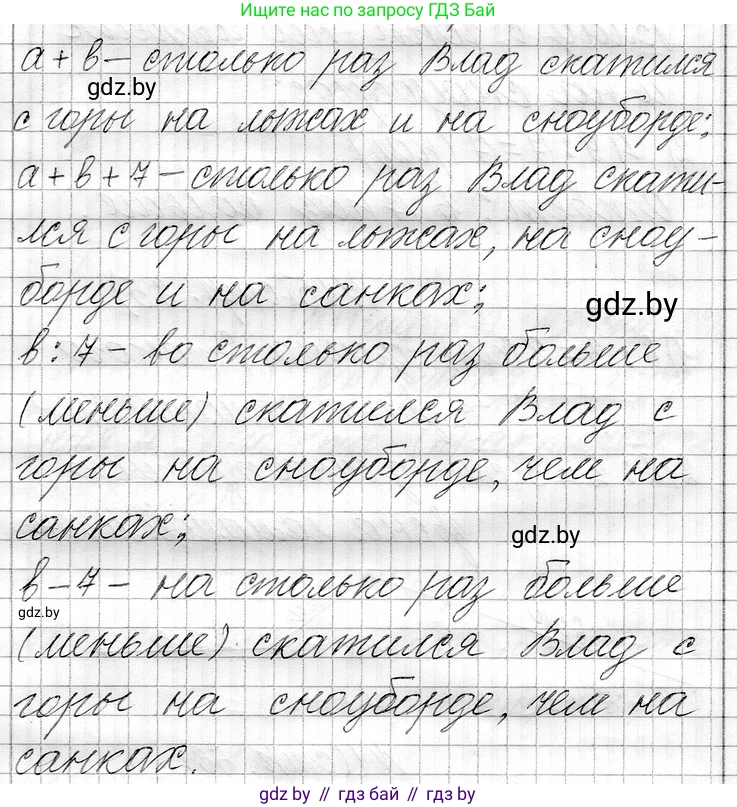 Ищите нас по запросу ГДЗ Бай
a + b – столько раз Влад скатился
gdz.by
с горы на лыжах и на сноуборде;
a + b + 7 – столько раз Влад скати-
лся с горы на лыжах, на сноу-
борде и на санках;
gdz.by
b : 7 – во столько раз больше
(меньше) скатился Влад с
горы на сноуборде, чем на
санках;
gdz.by
b – 7 – на столько раз больше
gdz.by
(меньше) скатился Влад с
горы на сноуборде, чем на
санках.
gdz by // гдз бай // gdz by